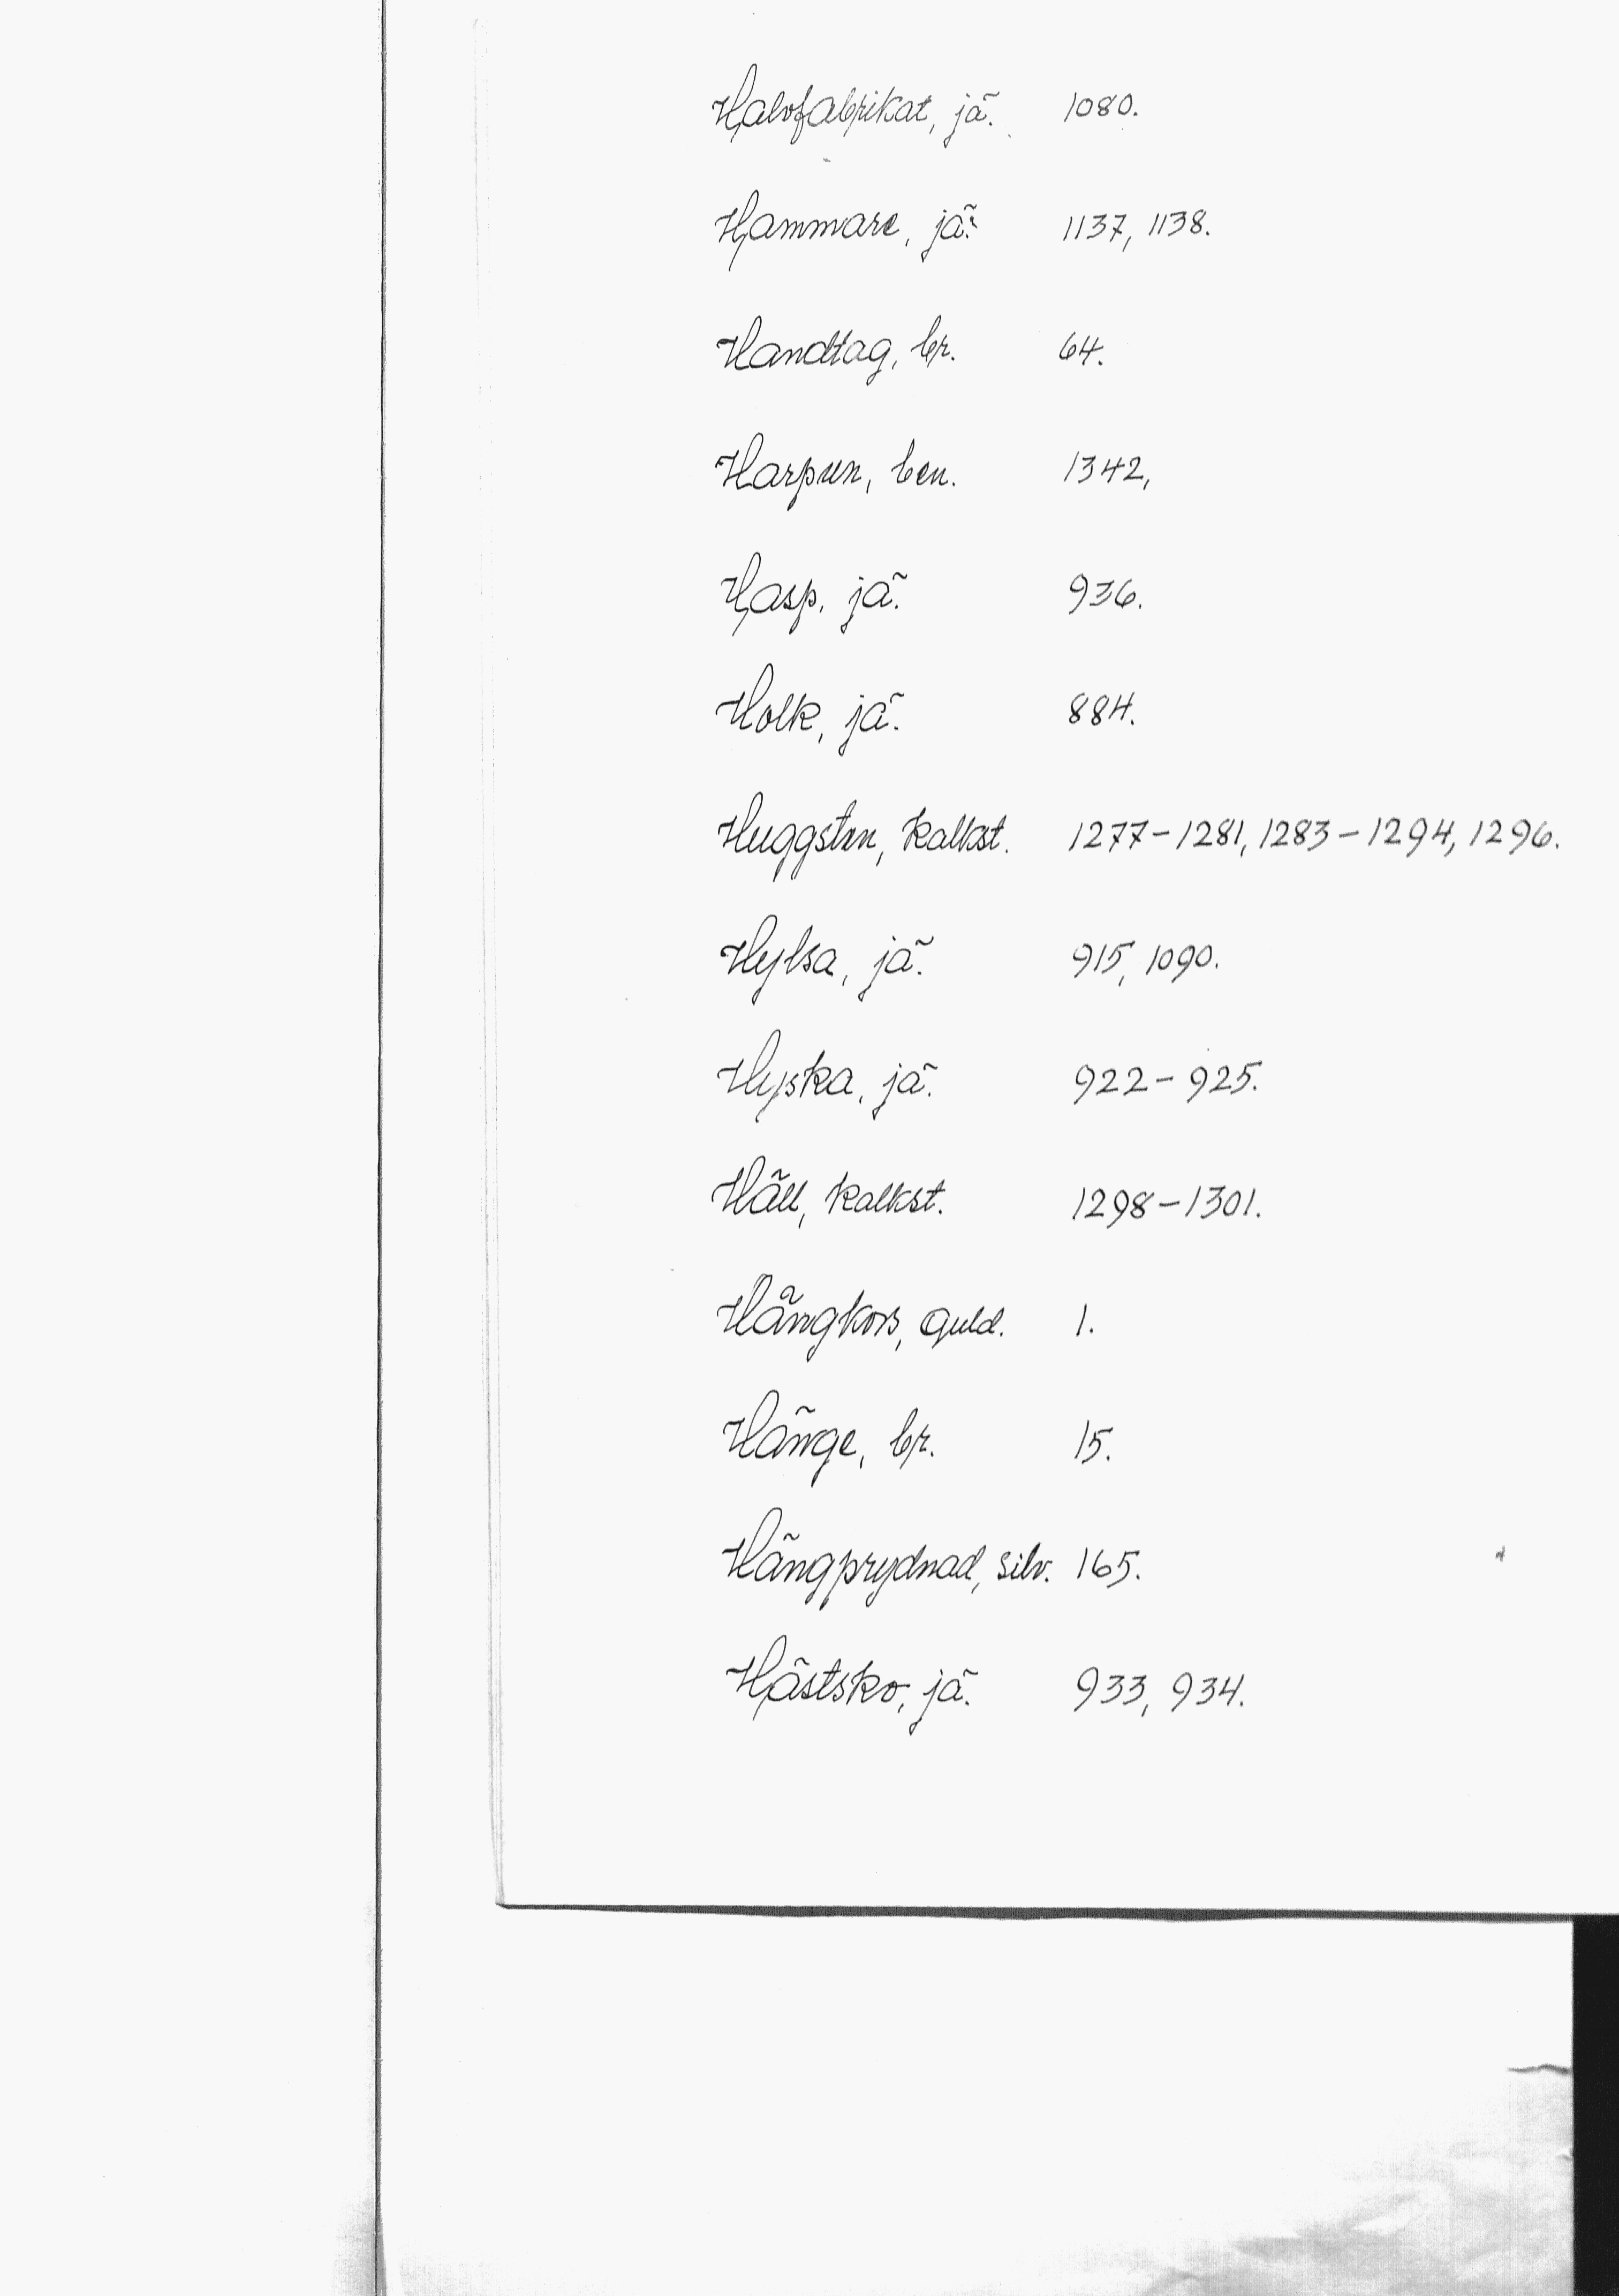 Halvfabrikat, jä. 1080.
Hammare, jä. 1137, 1138.
Handtag, br. 64.
Harpun, ben. 1342,
Hasp, jä. 936.
Holk, jä. 884.
Huggsten, kalkst. 1277-1281, 1283-1294, 1296.
Hylsa, jä. 915, 1090.
Hyska, jä. 922-925.
Häll, kalkst. 1298-1301.
Hängkors, guld. 1.
Hänge, br. 15.
Hängprydnad, silv. 165.
Hästsko, jä. 933, 934.